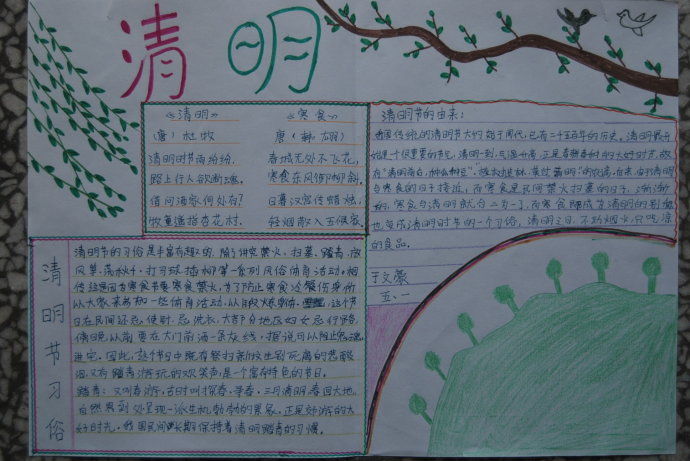 清明
《清明》
(唐)杜牧
清明时节雨纷纷,
路上行人欲断魂。
借问酒家何处有?
牧童遥指杏花村.
《寒食》
唐(韩翃)
春城无处不飞花,
寒食东风御柳斜.
日暮汉宫传蜡烛,
轻烟散入五侯家.
清明节的由来:
我国传统的清明节大约始于周代,已有二千五百年的历史。清明最开
始是一个很重要的节气,清明一到,气温升高,正是春耕春种的大好时节,故
有"清明前后,种瓜种豆"。"植树造林,莫过清明"的农谚。后来,由于清明
与寒食的日子接近,而寒食是民间禁火扫墓的日子,渐渐
的,寒食与清明就合二为一了,而寒食既成为清明的别称
也变成清明时节的一个习俗,清明之日不动烟火,只吃凉
的食品。
于文豪
五、一
清明节习俗
清明节的习俗是丰富有趣的,除了讲究禁火、扫墓,踏青、放
风筝、荡秋千、打马球、插柳等一系列风俗体育活动。相
传这是因为寒食节要寒食禁火,为了防止寒食冷餐伤身,所
以大家来参加一些体育活动,以锻炼身体。这个节
日在民间还忌使针,忌洗衣,大部分地区妇女忌行路。
傍晚以前,要在大门前洒一条灰线,据说可以阻止鬼魂
进宅。因此,这个节日中既有祭扫新坟生别死离的悲酸
泪,又有踏青游玩的欢笑声,是一个富有特色的节日。
踏青:又叫春游,古时叫探春、寻春。三月清明,春回大地,
自然界到处呈现一派生机勃勃的景象,正是郊游的大
好时光。我国民间长期保持着清明踏青的习惯。